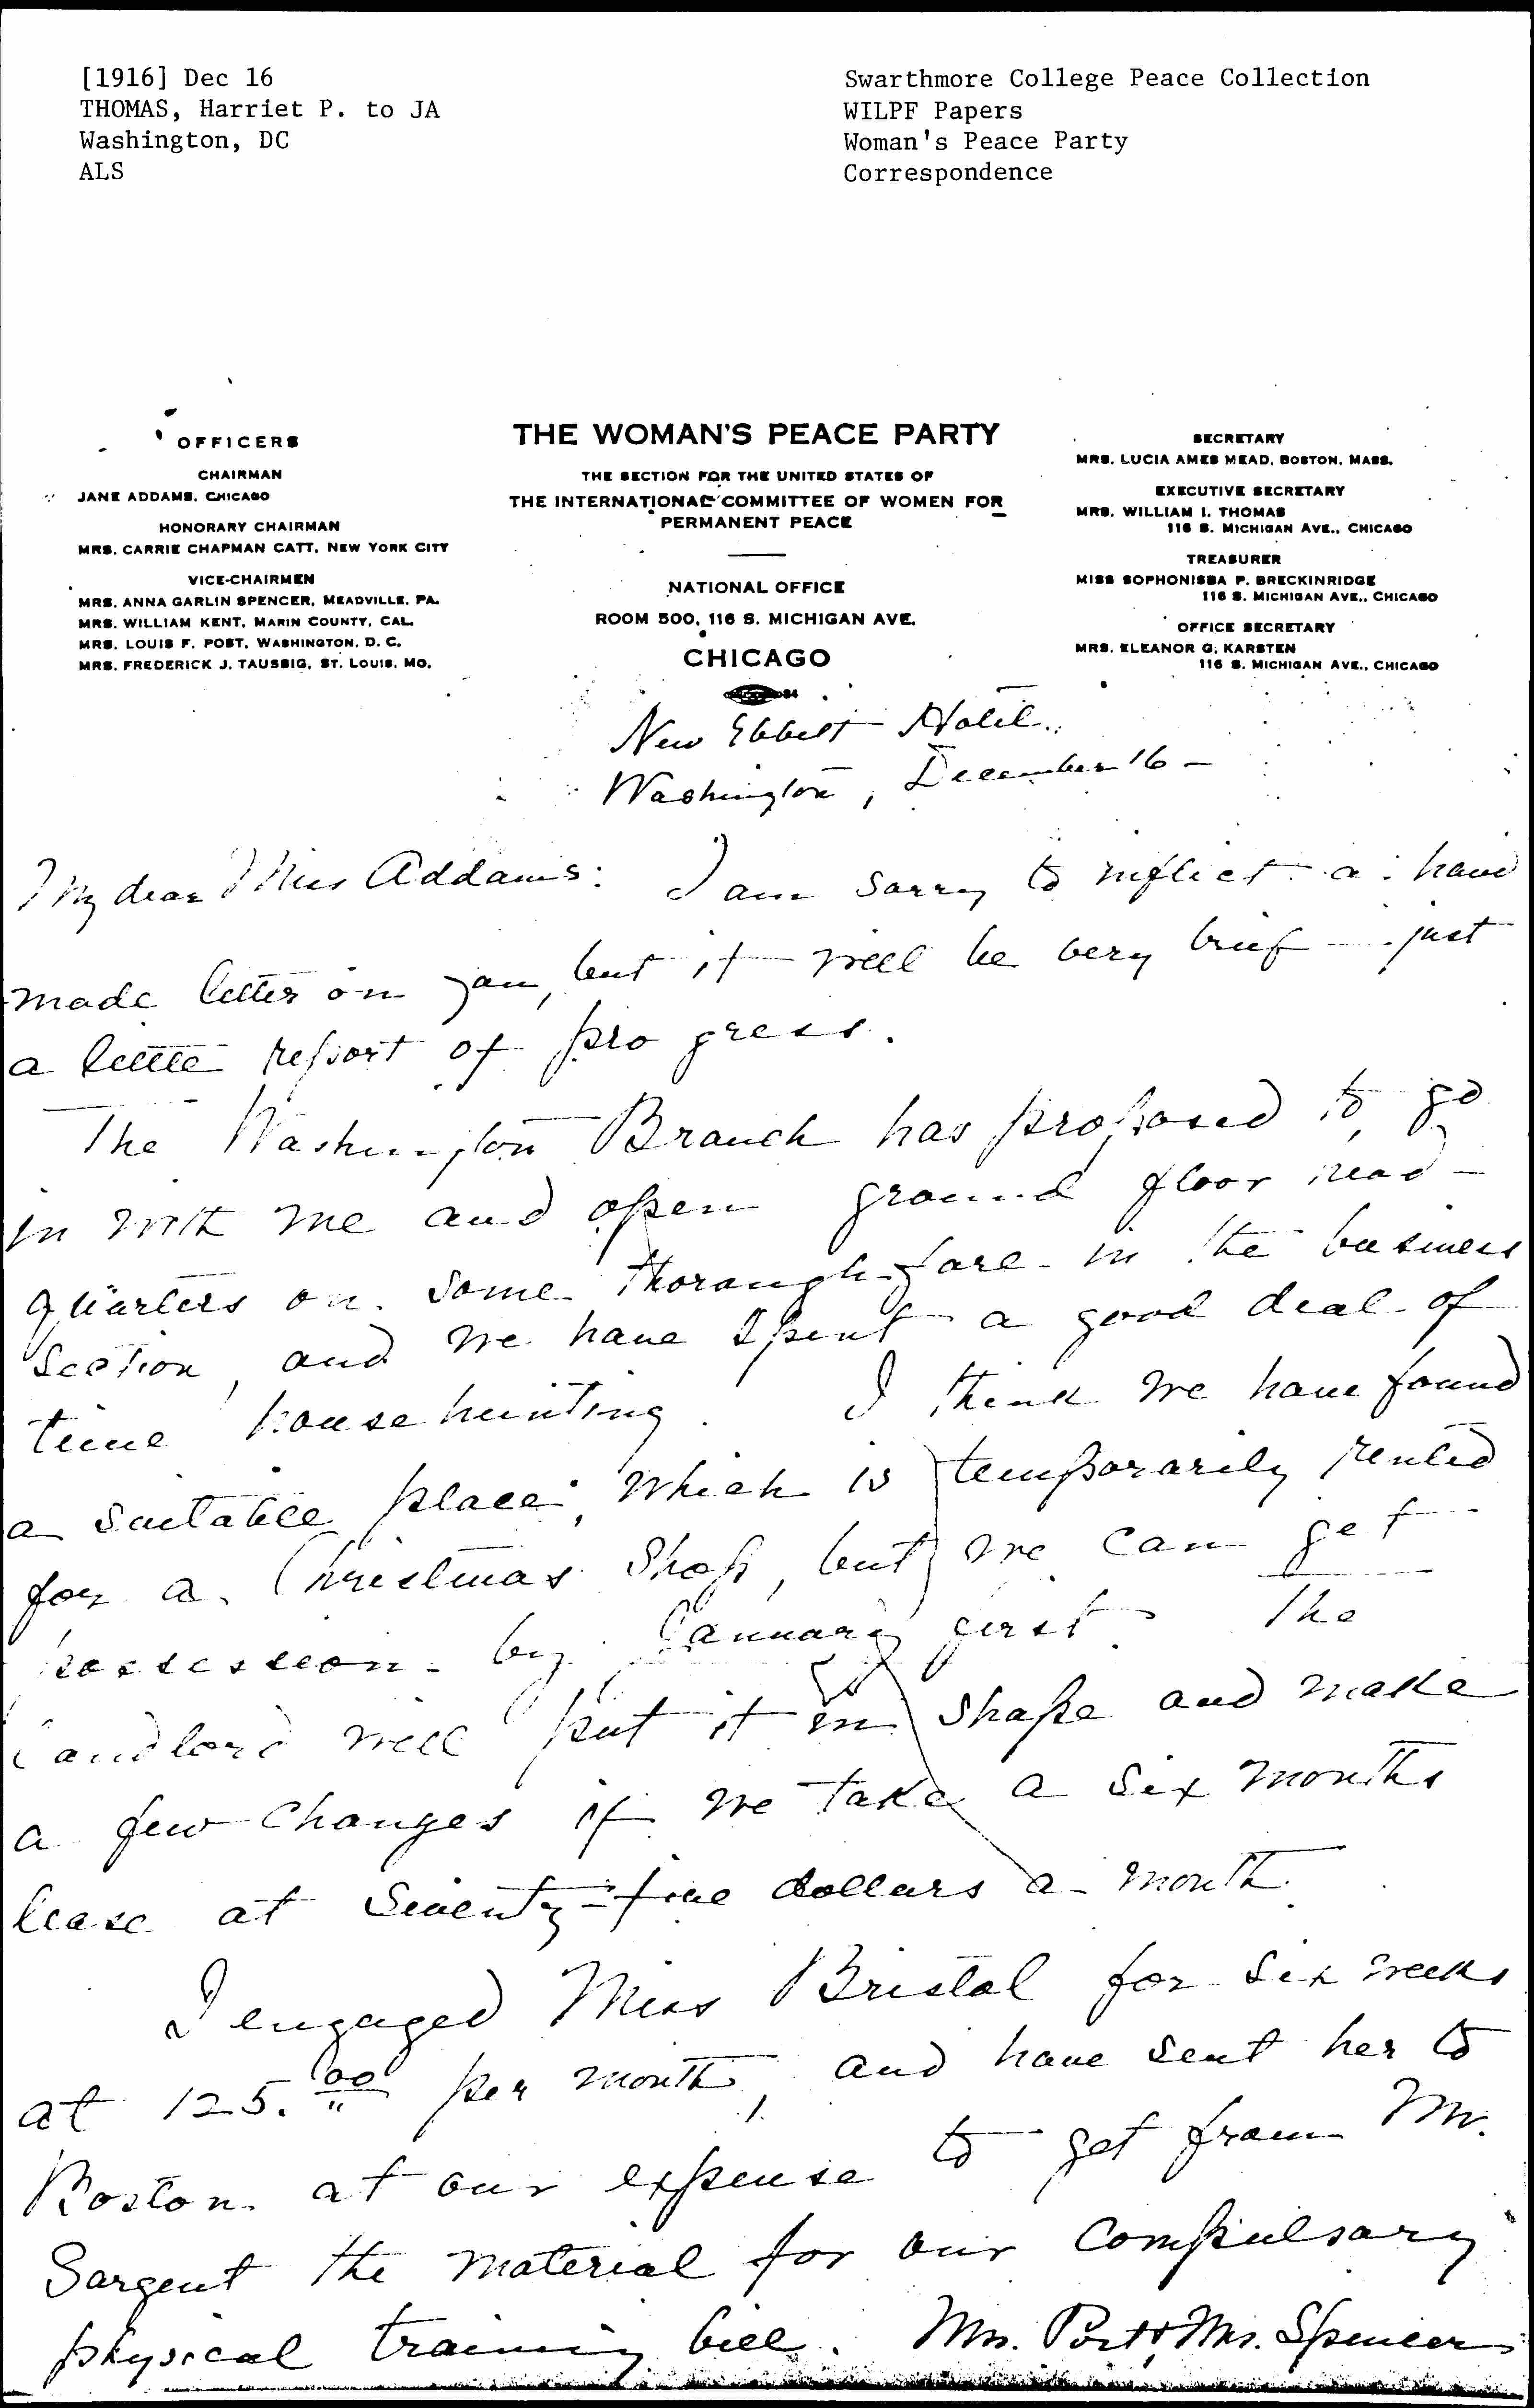 [1916] Dec 16
THOMAS, Harriet P. to JA
Washington, DC
ALS
Swarthmore College Peace Collection
WILPF Papers
Woman's Peace Party
Correspondence
OFFICERS
CHAIRMAN
JANE ADDAMS, CHICAGO
HONORARY CHAIRMAN
MRS. CARRIE CHAPMAN CATT, NEW YORK CITY
VICE-CHAIRMEN
MRS. ANNA GARLIN SPENCER, MEADVILLE, PA.
MRS. WILLIAM KENT, MARIN COUNTY, CAL.
MRS. LOUIS F. POST, WASHINGTON, D. C.
MRS. FREDERICK J. TAUSSIG, ST. LOUIS, MO.
THE WOMAN'S PEACE PARTY
THE SECTION FOR THE UNITED STATES OF
THE INTERNATIONAL COMMITTEE OF WOMEN FOR
PERMANENT PEACE
NATIONAL OFFICE
ROOM 500, 116 S. MICHIGAN AVE.
CHICAGO
SECRETARY
MRS. LUCIA AMES MEAD, BOSTON, MASS.
EXECUTIVE SECRETARY
MRS. WILLIAM I. THOMAS
116 S. MICHIGAN AVE., CHICAGO
TREASURER
MISS SOPHONISBA P. BRECKINRIDGE
116 S. MICHIGAN AVE., CHICAGO
OFFICE SECRETARY
MRS. ELEANOR G. KARSTEN
116 S. MICHIGAN AVE., CHICAGO
New Ebbitt Hotel.
Washington, December 16 -
My dear Miss Addams: I am sorry to inflict a hand
made letter on you, but it will be very brief — just
a little report of progress.
The Washington Branch has proposed to go
in with me and open ground floor head-
quarters on some thorough-fare in the business
section, and we have spent a good deal of
time house hunting. I think we have found
a suitable place, which is temporarily rented
for a Christmas Shop, but we can get
possession by January first. The
landlord will put it in shape and make
a few changes if we take a six months
lease at seventy-five dollars a month.
I engaged Miss Bristol for six weeks
at 125.00 per month, and have sent her to
Boston at our expense to get from Mr.
Sargent the material for our compulsory
physical training bill. Mrs. Post & Mrs. Spencer